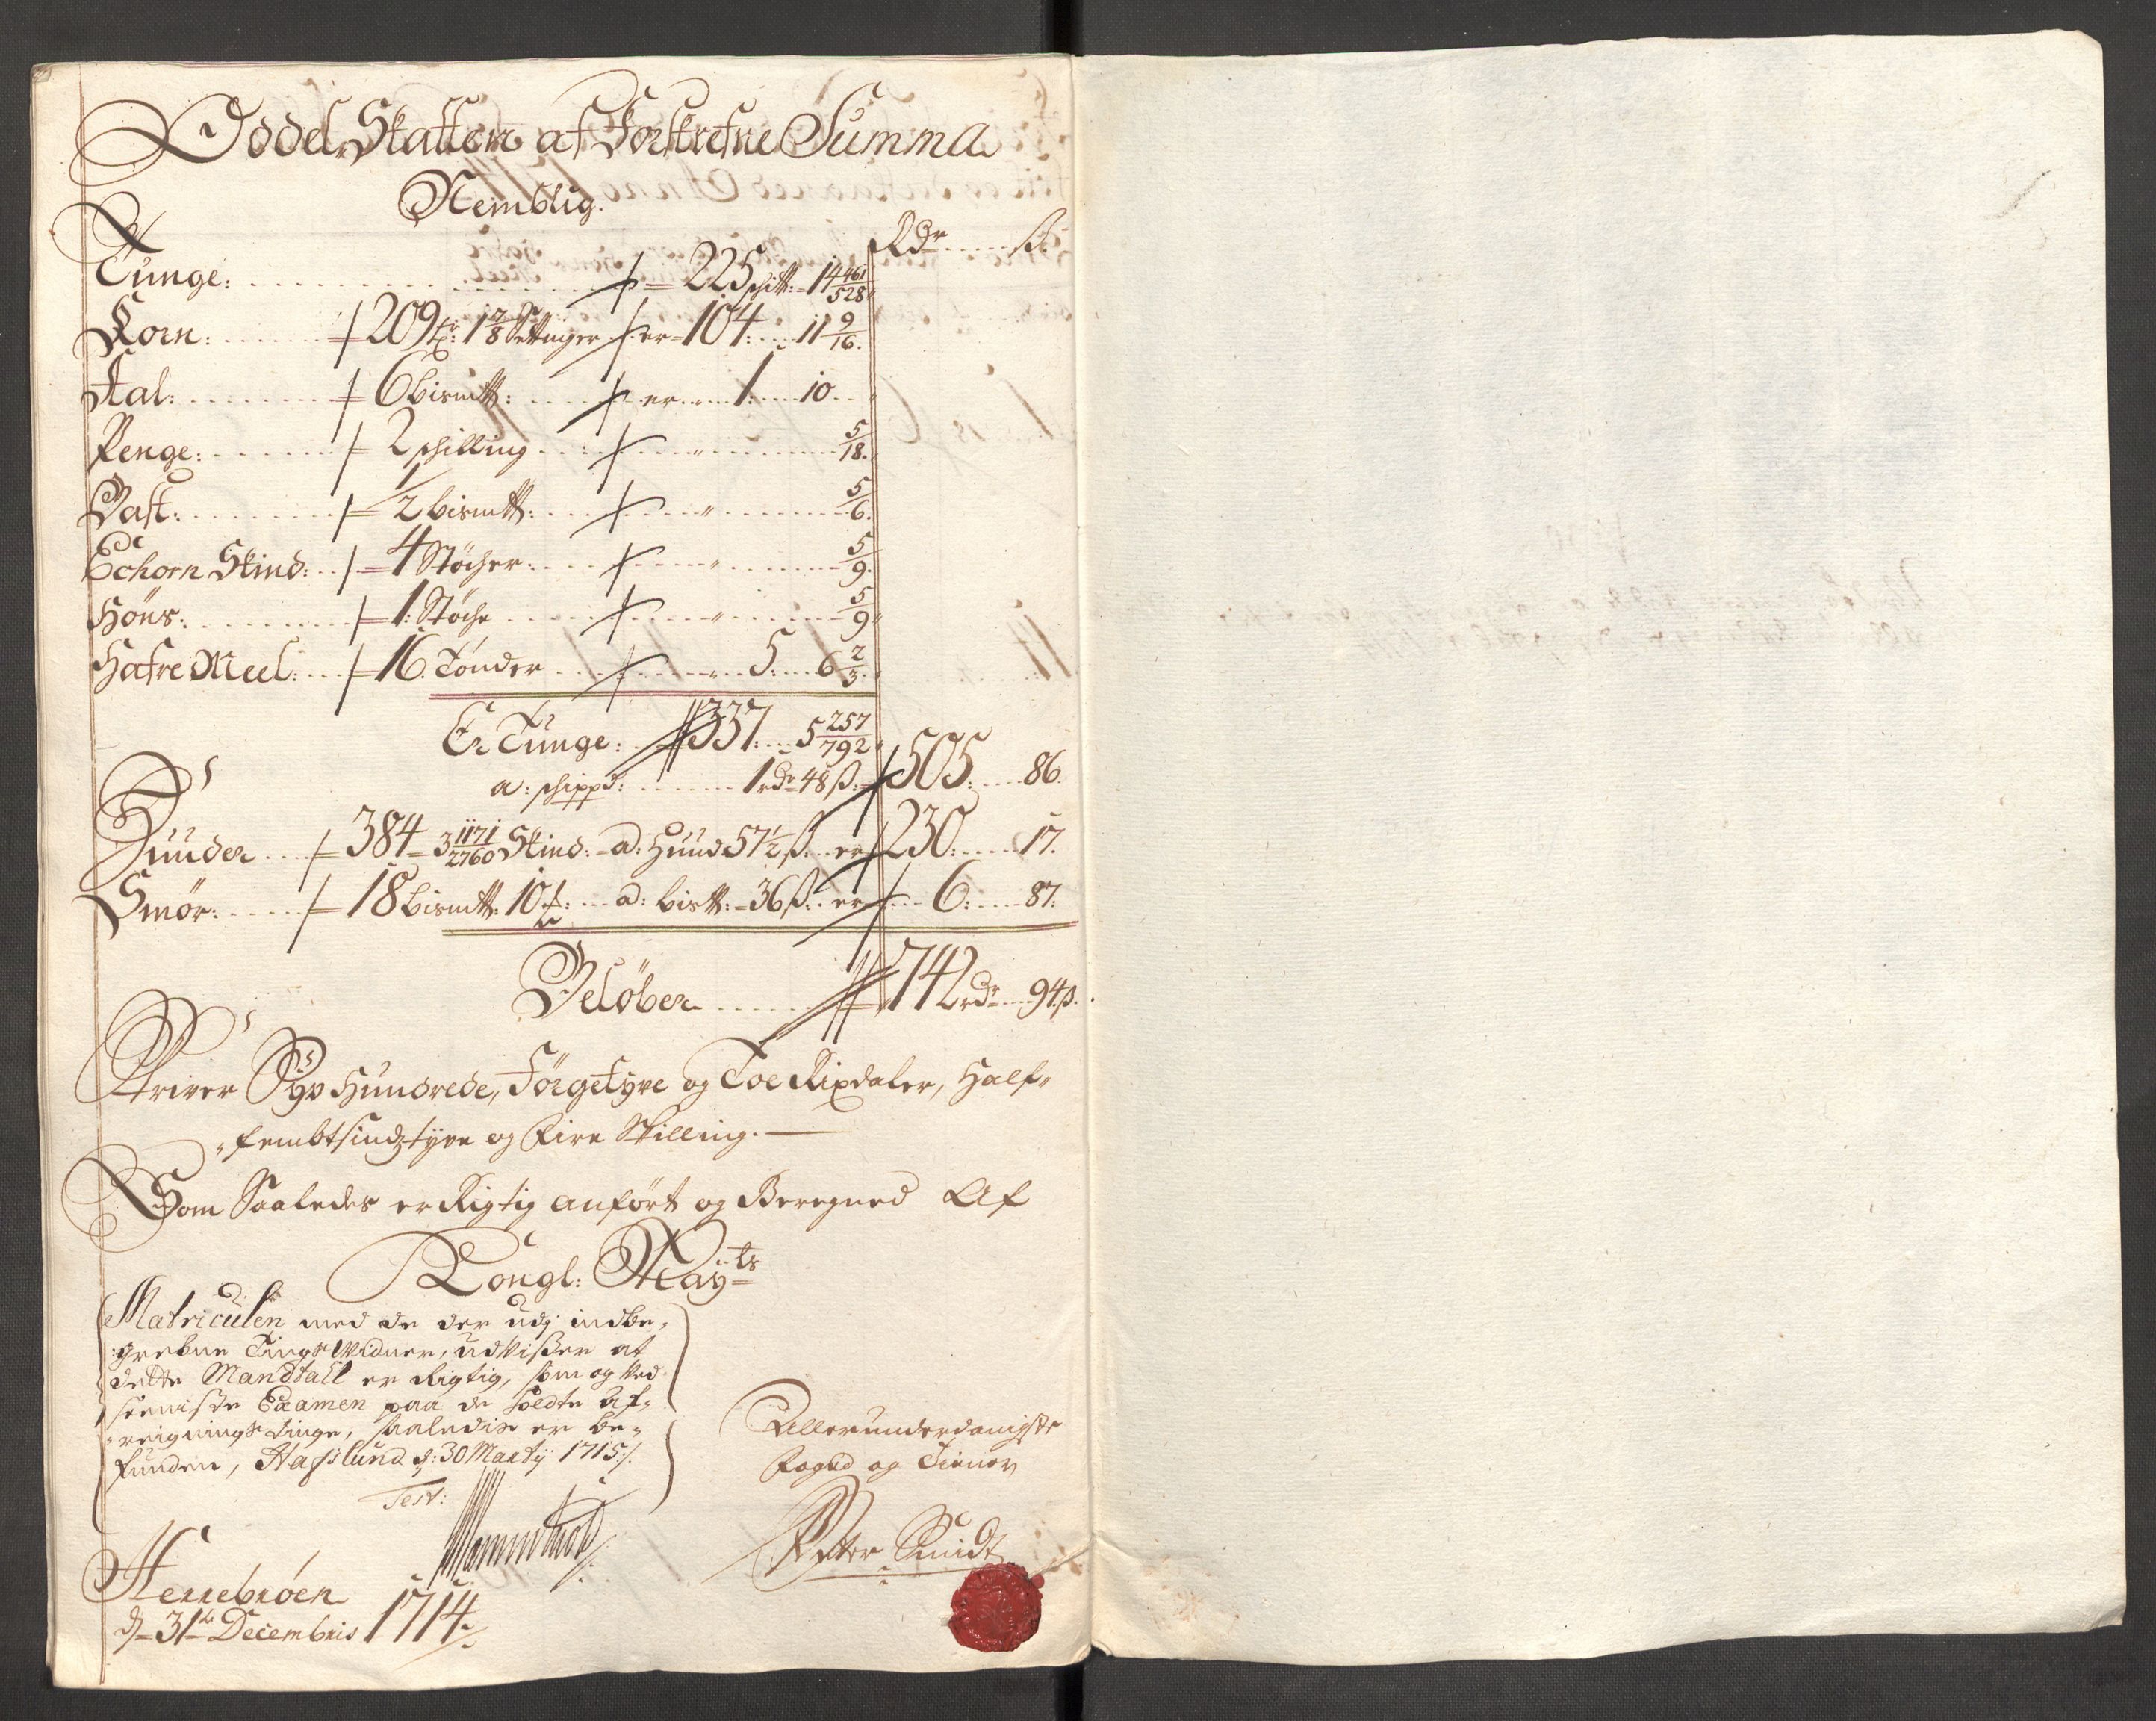 Oddel Skatten af Forskrefne Summa
Nemblig.
Rdr ß
Tunge: 225 schpt: 14 461/528
Korn: 209 tr: 1 7/8 Settinger er 104: 11 9/16
Aal: 6 bismt: er 1: 10
Penge: 2 schilling " 5/18
Bast: 1/2 bismt: " 5/6
Echorn Skind: 4 Støcher " 5/9
Höns: 1: Støche " 5/9
Hafre Meel: 16 Tønder " 5: 6 2/3
Er Tunge: 337: 5 257/792
a: schippd: 1 rdr 48 ß: 505: 86.
Huuder 384 3 1171/2760 Skind: a: Huud 57 1/2 ß: er 230: 17.
Smör: 18 bismt: 10 a: bist: 36 ß: er 6: 87.
Belöber 742 rdr 94 ß.
Skriver Syv Hundrede, Förgetyve og Toe Rixdaler, Half-
fembtsindztyve og Fire Skilling.
Som Saaledes er Rigtig anført og Beregned Af
Kongl: Mayts
Matriculen med de der udj indbe-
grebne Tings Widner, udvißer at
dette Mandtall er Rigtig, som og ved
seeniste Examen paa de holdte Af-
reignings Tinge, saaledis er be-
funden, Hafslund d: 30 Marty 1715
Test:
Allerunderdanigste
Foged og Tienner
Peter Smidt
Herrebröen
d 31te Decembris 1714